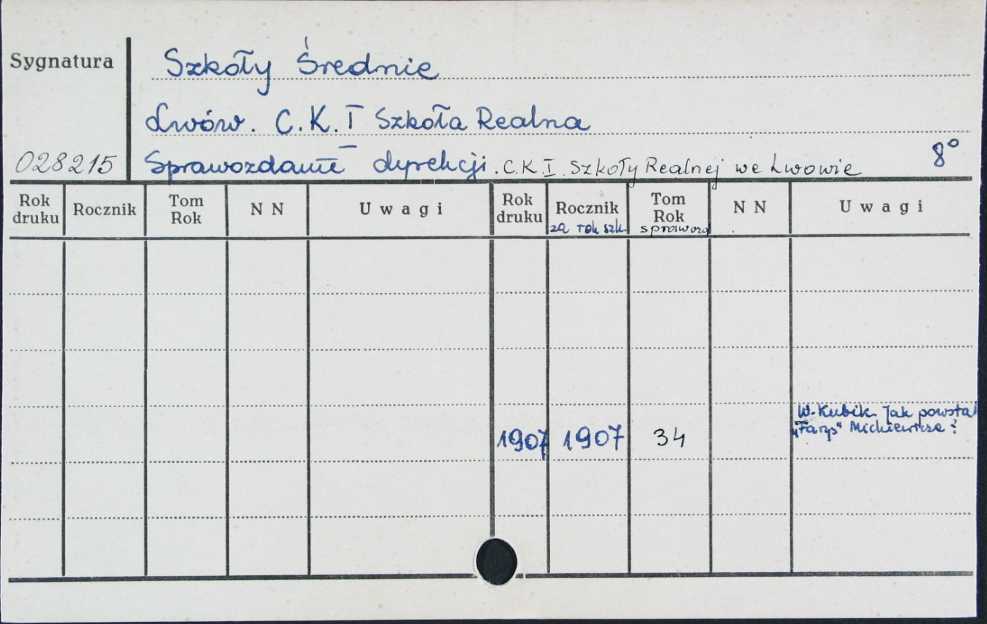 Sygnatura Szkoły Średnie
Lwów. C.K. I Szkoła Realna
028215 Sprawozdanie dyrekcji. C.K. I. Szkoły Realnej we Lwowie 8°
Rok druku Rocznik Tom Rok N N Uwagi Rok druku Rocznik za rok szk. Tom Rok sprawozd N N Uwagi
1907 1907 34 W. Kubik Jak powstał
„Farys" Mickiewicza?